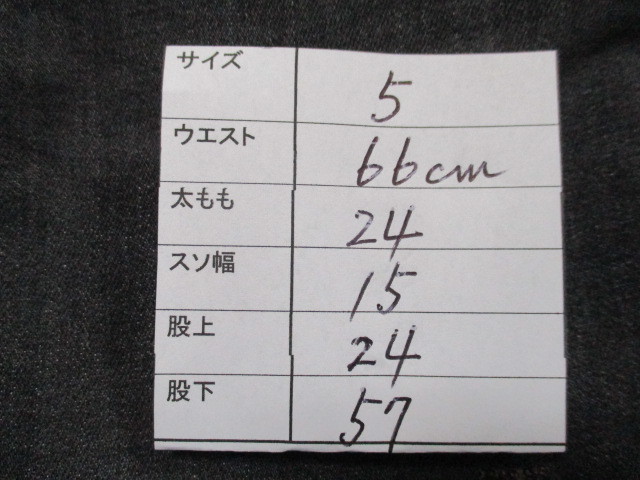 サイズ 5
ウエスト 66cm
太もも 24
スソ幅 15
股上 24
股下 57